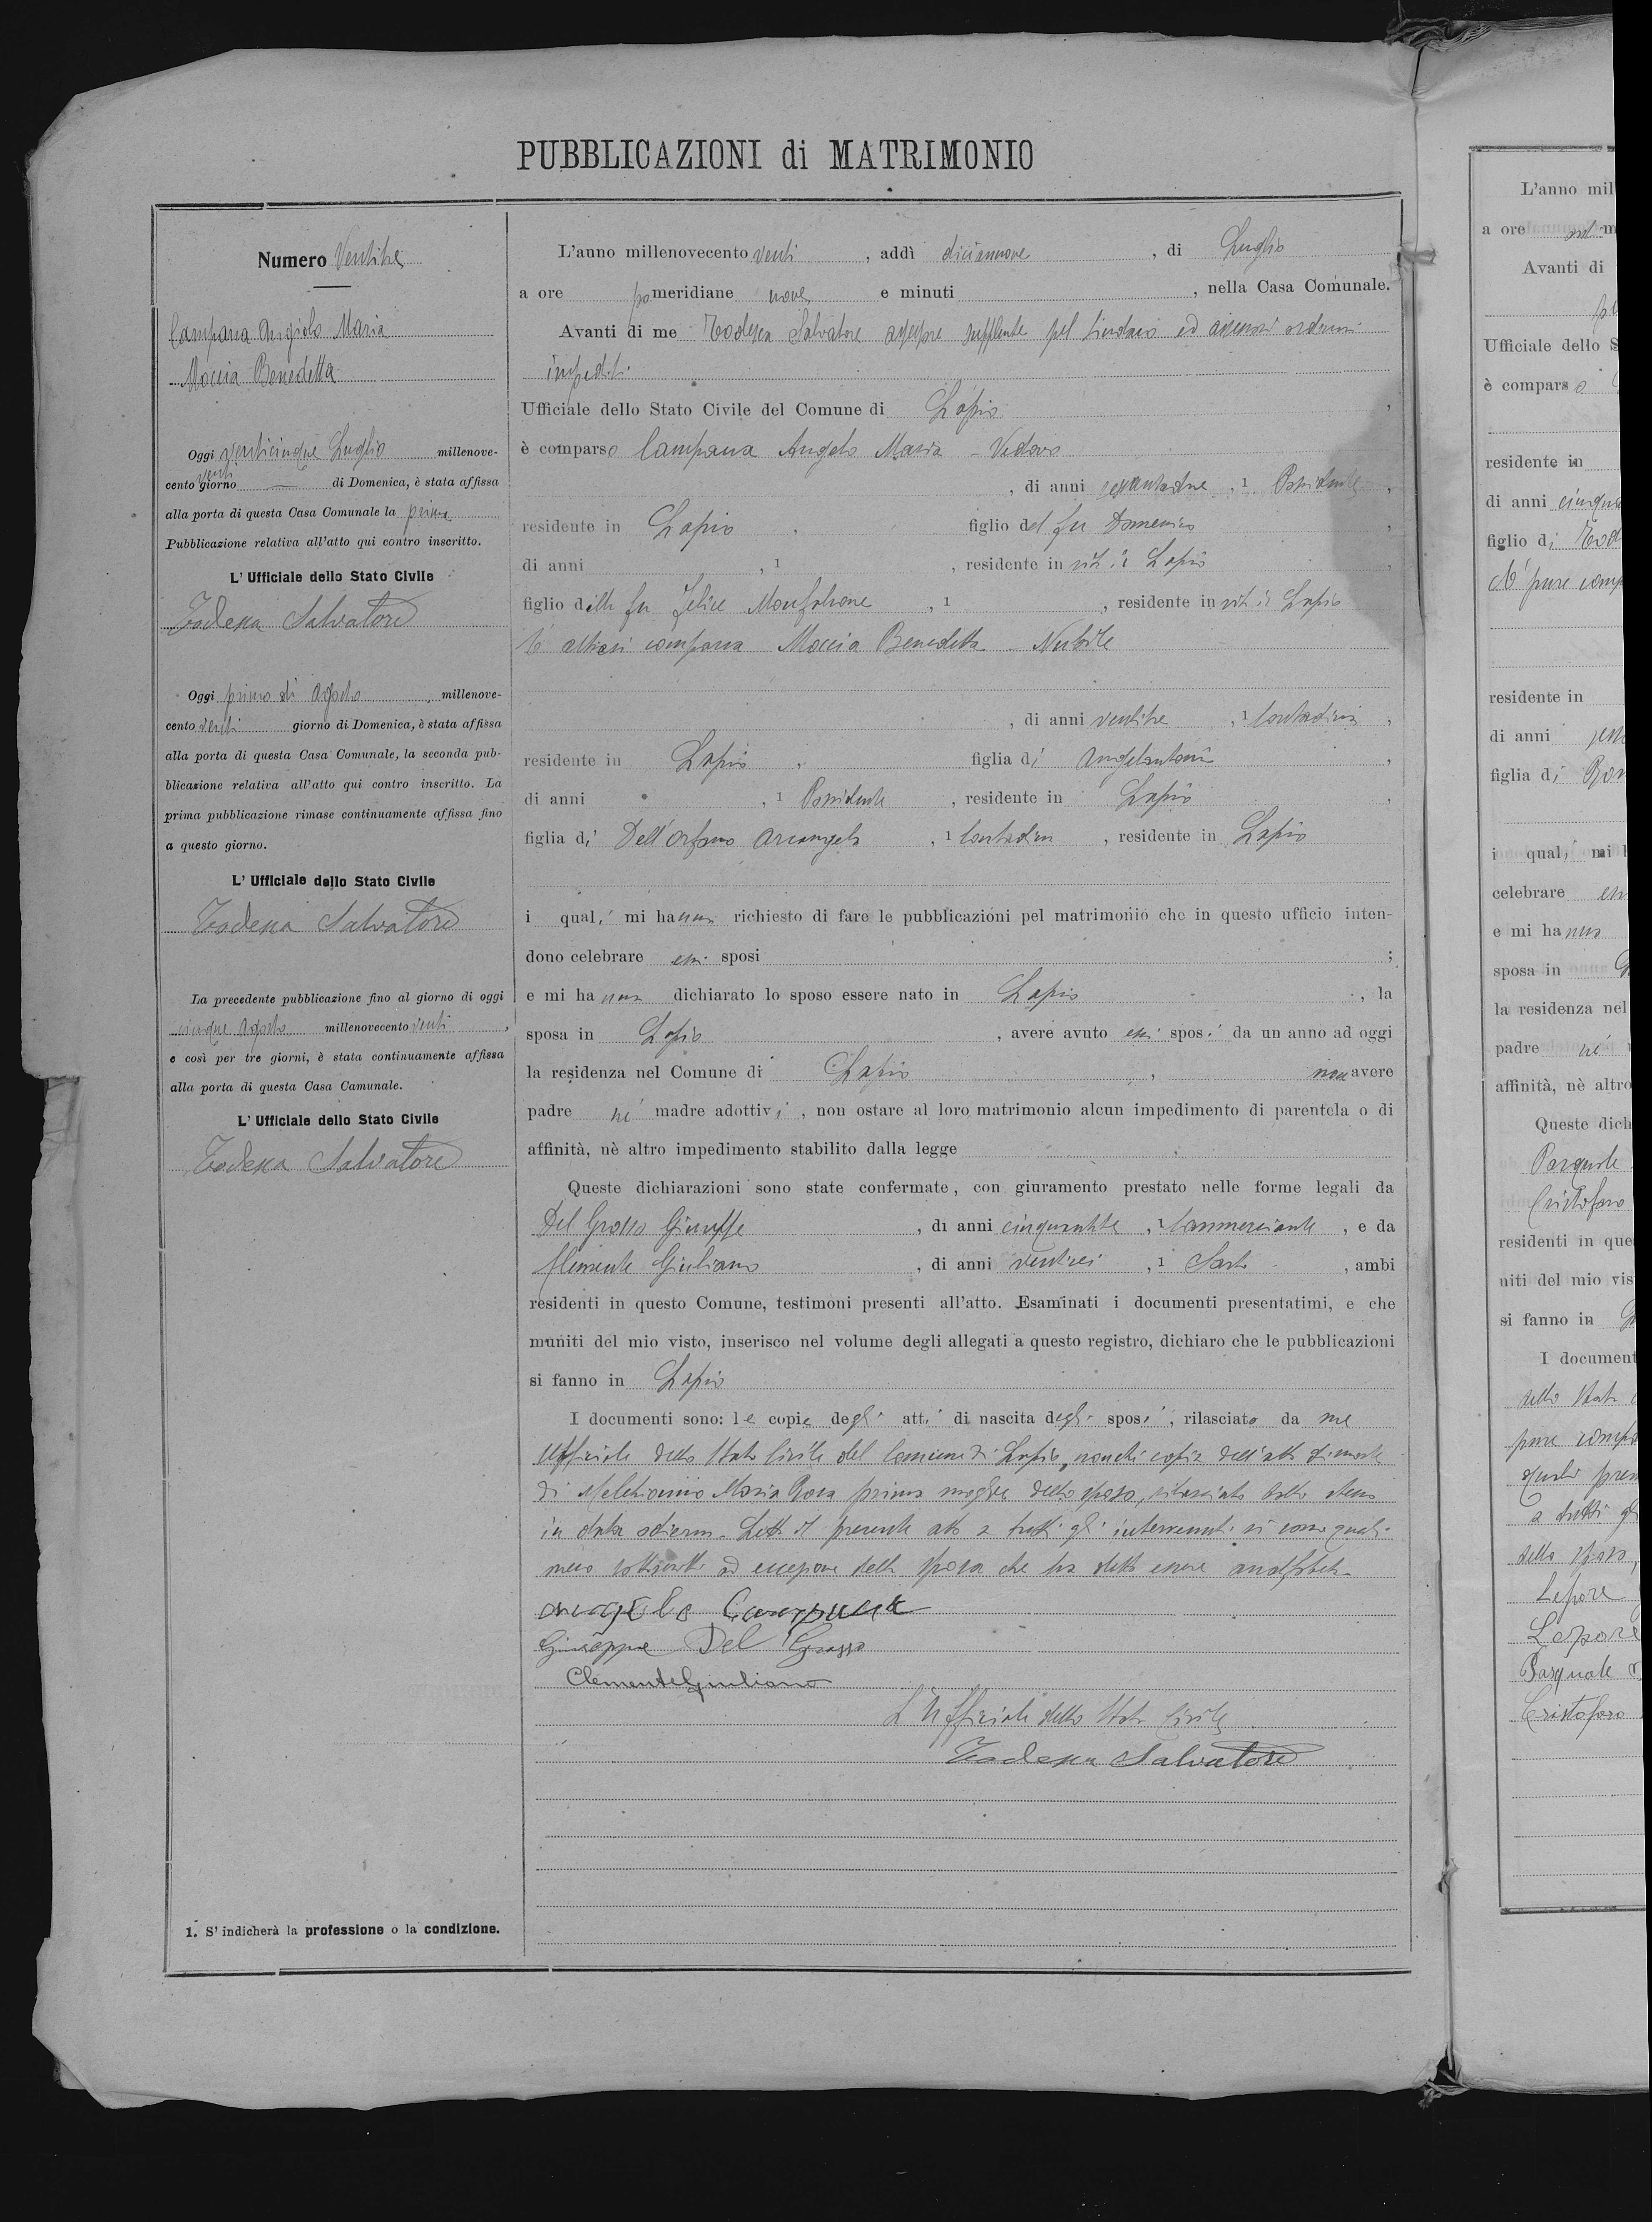 PUBBLICAZIONI di MATRIMONIO
Numero Ventitre
Campana Angiolo Maria
Moccia Benedetta
Oggi venticinque Luglio millenove-
cento venti giorno di Domenica, è stata affissa
alla porta di questa Casa Comunale la prima
Pubblicazione relativa all'atto qui contro inscritto.
L' Ufficiale dello Stato Civile
Todesca Salvatore
Oggi primo di Agosto millenove-
cento venti giorno di Domenica, è stata affissa
alla porta di questa Casa Comunale, la seconda pub-
blicazione relativa all'atto qui contro inscritto. La
prima pubblicazione rimase continuamente affissa fino
a questo giorno.
L' Ufficiale dello Stato Civile
Todesca Salvatore
La precedente pubblicazione fino al giorno di oggi
cinque Agosto millenovecento venti,
e così per tre giorni, è stata continuamente affissa
alla porta di questa Casa Camunale.
L' Ufficiale dello Stato Civile
Todesca Salvatore
1. S' indicherà la professione o la condizione.
L'anno millenovecento venti, addì diciannove, di Luglio
a ore pomeridiane nove e minuti, nella Casa Comunale.
Avanti di me Todesca Salvatore assessore supplente pel Sindaco ed assessori ordinari
impediti
Ufficiale dello Stato Civile del Comune di Lapio,
è comparso Campana Angelo Maria - Vedovo
, di anni , 1 Possidente,
residente in Lapio, figlio del fu Domenico,
di anni , 1 , residente in vita in Lapio,
figlio della fu Felice Monfalcone, 1 , residente in vita in Lapio
È altresì comparsa Moccia Benedetta Nubile
, di anni ventitre, 1 Contadina,
residente in Lapio, figlia di Angelantonio,
di anni , 1 Possidente, residente in Lapio,
figlia di Dell'Orfano Arcangela, 1 Contadina, residente in Lapio
i quali mi hanno richiesto di fare le pubblicazioni pel matrimonio che in questo ufficio inten-
dono celebrare essi sposi ;
e mi hanno dichiarato lo sposo essere nato in Lapio, la
sposa in Lapio, avere avuto essi sposi da un anno ad oggi
la residenza nel Comune di Lapio, non avere
padre nè madre adottivi, non ostare al loro matrimonio alcun impedimento di parentela o di
affinità, nè altro impedimento stabilito dalla legge
Queste dichiarazioni sono state confermate, con giuramento prestato nelle forme legali da
Del Grosso Giuseppe, di anni , 1 Commerciante, e da
Clemente Giuliano, di anni ventisei, 1 Sarto, ambi
residenti in questo Comune, testimoni presenti all'atto. Esaminati i documenti presentatimi, e che
muniti del mio visto, inserisco nel volume degli allegati a questo registro, dichiaro che le pubblicazioni
si fanno in Lapio
I documenti sono: le copie degli atti di nascita degli sposi, rilasciato da me
Ufficiale dello Stato Civile del Comune di Lapio, nonchè copia dell'atto di morte
di Melchionno Maria Rosa prima moglie dello sposo, rilasciato dallo stesso
in data odierna. Letto il presente atto a tutti gli intervenuti si sono quali
meco sottoscritti ad eccezione della sposa che ha detto essere analfabeta
Angelo Campana
Giuseppe Del Grosso
Clemente Giuliano
L'Ufficiale dello Stato Civile
Todesca Salvatore
L'anno mil
a ore
Avanti di
Ufficiale dello S
è comparso
residente in
di anni cinqua
figlio di Tod
È pure comp
residente in
di anni
figlia di
i quali mi h
celebrare
e mi hanno
sposa in
la residenza nel
padre nè
affinità, nè altro
Queste dich
Pasquale
Cristofaro
residenti in que
niti del mio vis
si fanno in
I document
dello Stato
pure
a tutti gli
dello sposo,
Lepore
Lepore
Pasquale
Cristofaro